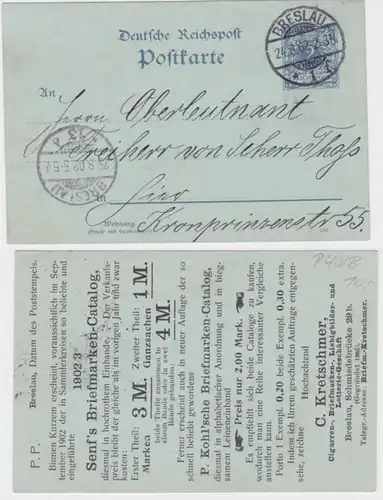 Deutsche Reichspost
Postkarte
BRESLAU
* 1 f
An
Herrn Oberleutnant
Freiherr von Scherr Thoss
BRESLAU
in
Hier
Wohnung
Kronprinzenstr 55.
P. P. Breslau, Datum des Poststempels.
Binnen Kurzem erscheint, voraussichtlich im Sep-
tember 1902 der in Sammlerkreisen so beliebte und
eingeführte
1902/3
Senf's Briefmarken-Catalog,
diesmal in hochrothem Einbande. Der Verkaufs-
preis bleibt der gleiche als im vorigen Jahr und zwar
kosten:
Erster Theil: Marken 3 M. Zweiter Theil: Ganzsachen 1 M.
beide Theile zusammen in
einem Bande oder in zwei
Bänden gebunden: 4 M.
Ferner erscheint auch in neuer Auflage der so
schnell beliebt gewordene
P. Kohl'sche Briefmarken-Catalog,
diesmal in alphabetischer Anordnung und in bieg-
samem Leineneinband
Preis nur 2,00 Mark.
Es empfiehlt sich beide Cataloge zu kaufen,
wodurch man eine Reihe interessanter Vergleiche
anstellen kann.
Porto 1 Exempl. 0,20 beide Exempl. 0,30 extra.
Indem ich Ihrem geschätzten Auftrage entgegen-
sehe, zeichne
Hochachtend
C. Kretschmer.
Cigarren-, Briefmarken-, Liebigbilder- und
Lotterie-Geschäft
Breslau, Schmiedebrücke 29 b.
Telegr.-Adresse: Briefm.-Kretschmer.